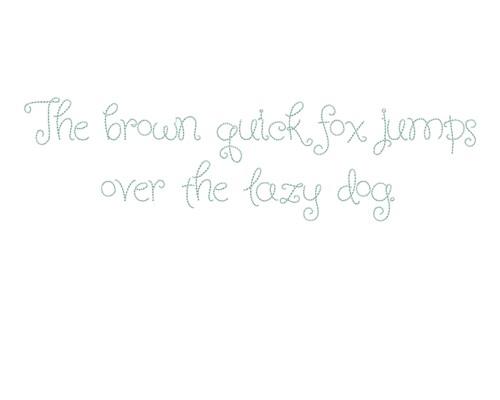 The brown quick fox jumps
over the lazy dog.